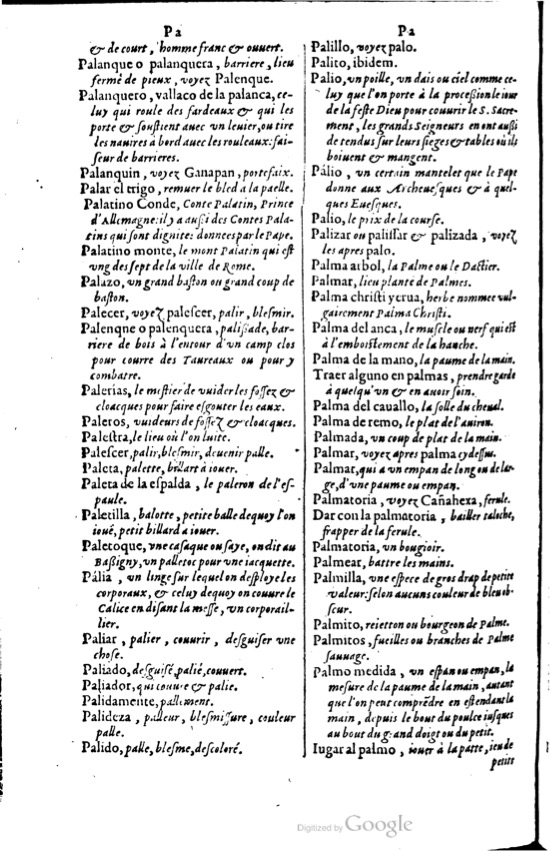 Pa
& de court, homme franc & ouuert.
Palanque o palanquera, barriere, lieu
fermé de pieux, voyez Palenque.
Palanquero, vallaco de la palanca, ce-
luy qui roule des fardeaux & qui les
porte & soustient auec vn leuier, ou tire
les nauires à bord auec les rouleaux: fai-
seur de barrieres.
Palanquin, voyez Ganapan, portefaix.
Palar el trigo, remuer le bled à la paelle.
Palatino Conde, Conte Palatin, Prince
d'Allemagne: il y a aussi des Contes Pala-
tins qui sont dignitez donnees par le Pape.
Palatino monte, le mont Palatin qui est
vng des sept de la ville de Rome.
Palazo, vn grand baston ou grand coup de
baston.
Palecer, voyez palescer, palir, blesmir.
Palenqne o palenquera, palissade, bar-
riere de bois à l'entour d'un camp clos
pour courre des Taureaux ou pour y
combatre.
Palerias, le mestier de vuider les fossez &
cloacques pour faire esgouter les eaux.
Paleros, vuideurs de fossez & cloacques.
Palestra, le lieu où l'on luite.
Palescer, palir, blesmir, deuenir palle.
Paleta, palette, billart à iouer.
Paleta de la espalda, le paleron de l'es-
paule.
Paletilla, balotte, petite balle dequoy l'on
ioué, petit billard a iouer.
Paletoque, vne casaque ou saye, on dit au
Bassigny, vn palletoc pour vne iacquette.
Pália, vn linge sur lequel on desploye les
corporaux, & celuy dequoy on couure le
Calice en disant la messe, vn corporail-
lier.
Paliar, palier, couurir, desguiser vne
chose.
Paliado, desguisé, palié, couuert.
Paliador, qui couure & palie.
Palidamente, pallement.
Palideza, palleur, blesmissure, couleur
palle.
Palido, palle, blesme, descoloré.
Pa
Palillo, voyez palo.
Palito, ibidem.
Palio, vn poille, vn dais ou ciel comme ce-
luy que l'on porte à la procession le iour
de la feste Dieu pour couurir le S. Sacre-
ment, les grands Seigneurs en ont aussi
de tendus sur leurs sieges & tables où ils
boiuent & mangent.
Pálio, vn certain mantelet que le Pape
donne aux Archeuesques & à quel-
ques Euesques.
Palio, le prix de la course.
Palizar ou palissar & palizada, voyez
les apres palo.
Palma arbol, la Palme ou le Dactier.
Palmar, lieu planté de Palmes.
Palma christi ycrua, herbe nommee vul-
gairement Palma Christi.
Palma del anca, le muscle ou nerf qui est
à l'emboistement de la hanche.
Palma de la mano, la paume de la main.
Traer alguno en palmas, prendre garde
à quelqu'un & en auoir soin.
Palma del cauallo, la solle du cheual.
Palma de remo, le plat de l'auiron.
Palmada, vn coup de plat de la main.
Palmar, voyez apres palma cy dessus.
Palmar, qui a vn empan de long ou de lar-
ge, d'vne paume ou empan.
Palmatoria, voyez Cañahexa, ferule.
Dar con la palmatoria, bailler taloche,
frapper de la ferule.
Palmatoria, vn bougioir.
Palmear, battre les mains.
Palmilla, vne espece de gros drap de petite
valeur: selon aucuns couleur de bleu ob-
scur.
Palmito, reietton ou bourgeon de Palme.
Palmitos, fueilles ou branches de Palme
sauuage.
Palmo medida, vn espan ou empan, la
mesure de la paume de la main, autant
que l'on peut comprēdre en estendant la
main, depuis le bout du poulce iusques
au bout du grand doigt ou du petit.
Iugar al palmo, iouer à la patte, ieu de
petits
Digitized by Google